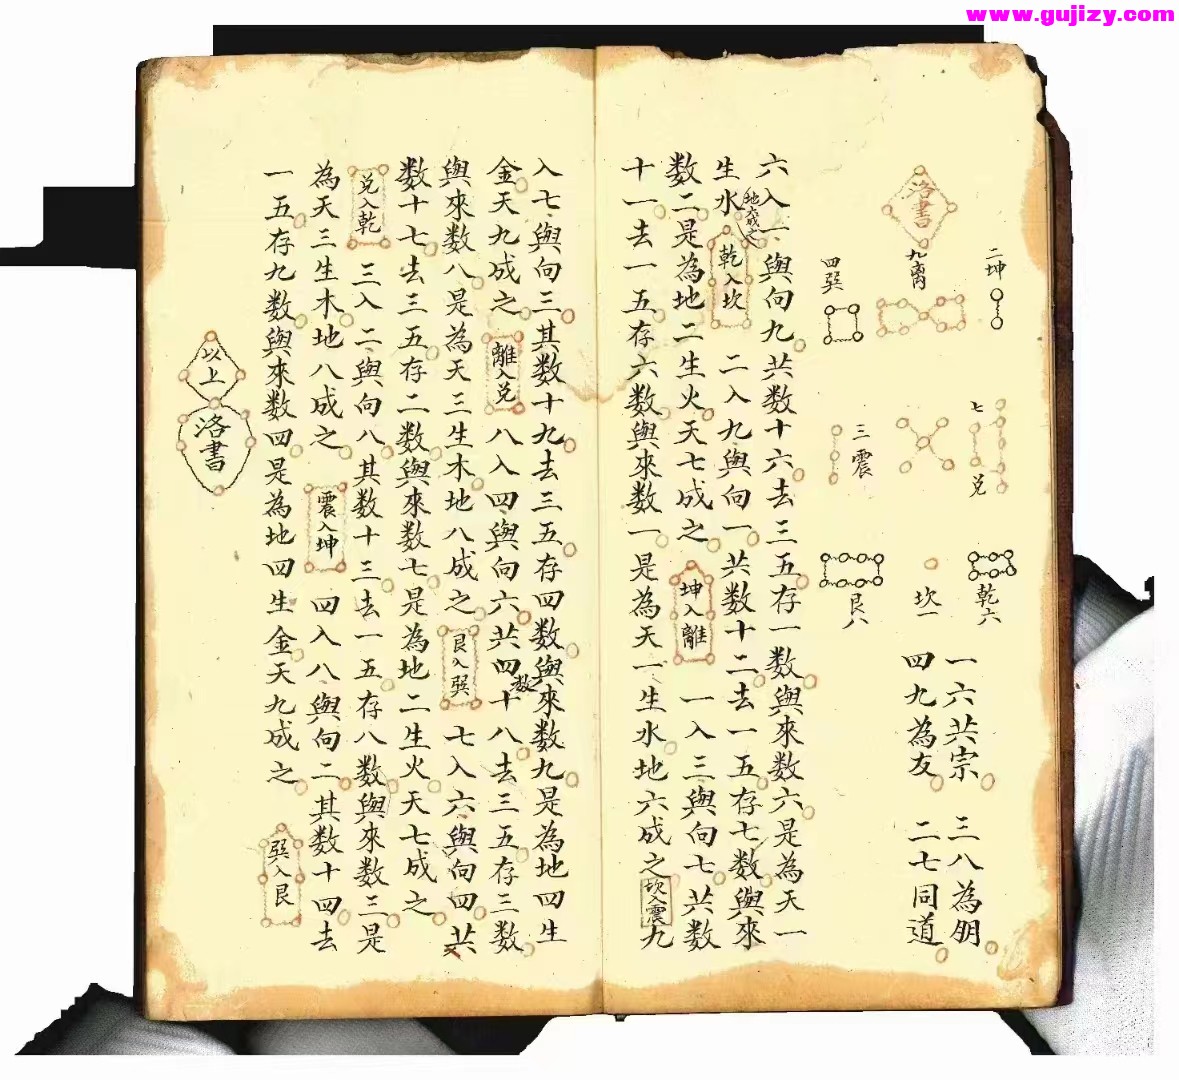 www.gujizy.com
洛書
二坤
九离
四巽
七兑
三震
乾六
坎一
艮八
一六共宗 三八為朋
四九為友 二七同道
六入一與向九共数十六去三五存一数與來数六是為天一
生水地六成之 乾入坎 二入九與向一共数十二去一五存七数與來
数二是為地二生火天七成之 坤入離 一入三與向七共数
十一去一五存六数與來数一是為天一生水地六成之 坎入震 九
入七與向三其数十九去三五存四数與來数九是為地四生
金天九成之 離入兑 八入四與向六共四十八去三五存三数
数
與來数八是為天三生木地八成之 艮入巽 七入六與向四共
数十七去三五存二数與來数七是為地二生火天七成之
兑入乾 三入二與向八其数十三去一五存八数與來数三是
為天三生木地八成之 震入坤 四入八與向二其数十四去
一五存九数與來数四是為地四生金天九成之 巽入艮
以上
洛書